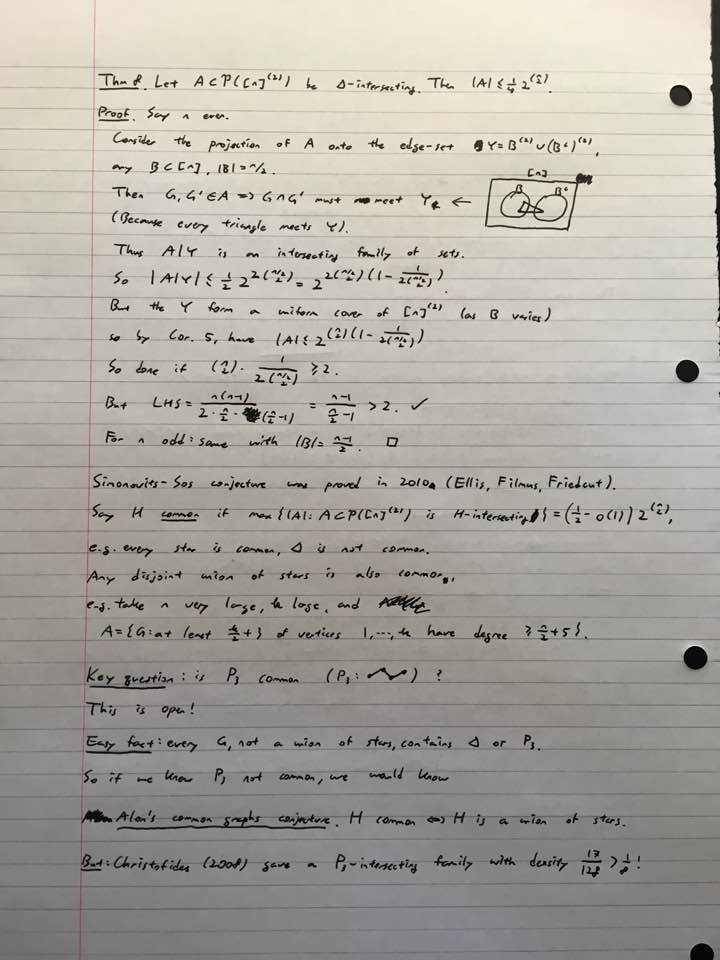 Thm 8. Let A⊂P([n]^(2)) be Δ-intersecting. Then |A| ≤ 1/4 2^(n choose 2).
Proof. Say n even.
Consider the projection of A onto the edge-set Y = B^(2) ∪ (B^c)^(2),
any B⊂[n], |B| = n/2.
[n]
B B^c
Then G, G' ∈ A ⇒ G∩G' must meet Y ←
(Because every triangle meets Y).
Thus A|Y is an intersecting family of sets.
So |A|Y| ≤ 1/2 2^(2(n/2 choose 2)) = 2^(2(n/2 choose 2)(1 - 1/(2(n/2 choose 2)))).
But the Y form a uniform cover of [n]^(2) (as B varies)
so by Cor. 5, have |A| ≤ 2^((n choose 2)(1 - 1/(2(n/2 choose 2))))
So done if (n choose 2) · 1/(2(n/2 choose 2)) ≥ 2.
But LHS = n(n-1)/(2 · n/2 · (n/2 -1)) = (n-1)/(n/2 -1) > 2. ✓
For n odd: same with |B| = (n-1)/2. □
Simonovits-Sos conjecture was proved in 2010 (Ellis, Filmus, Friedgut).
Say H common if max{|A|: A⊂P([n]^(2)) is H-intersecting} = (1/2 - o(1)) 2^(n choose 2),
e.g. every star is common, Δ is not common.
Any disjoint union of stars is also common,
e.g. take n very large, k large, and
A = {G: at least k/2 + 1 of vertices 1,...,k have degree ≥ n/2 + 5}.
Key question: is P3 common (P3: ) ?
This is open!
Easy fact: every G, not a union of stars, contains Δ or P3.
So if we knew P3 not common, we would know
Alon's common graphs conjecture. H common ⇔ H is a union of stars.
But: Christofides (2008) gave a P3-intersecting family with density 17/128 > 1/8!